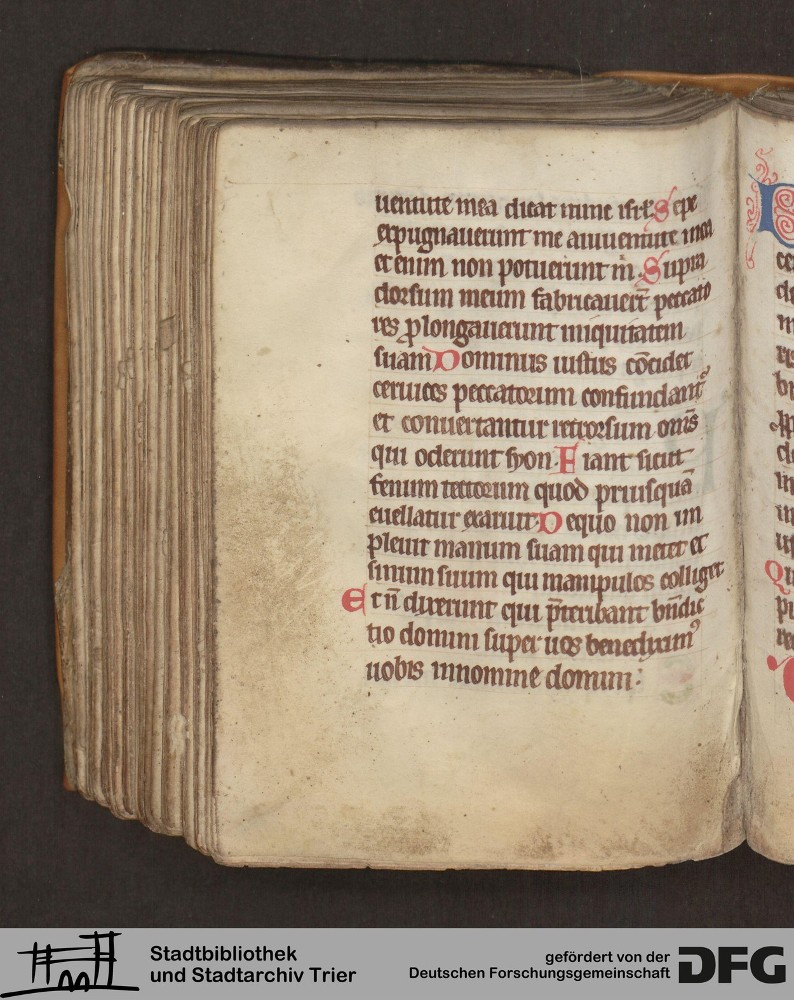 uentute mea dicat nunc isrl̄ Sepe
expugnauerunt me aiuuentute mea
etenim non potuerunt m̄. Supra
dorsum meum fabricauert̄ peccato
res ꝓlongauerunt iniquitatem
suam Dominus iustus cōcidet
ceruices peccatorum confundant᷑
et conuertantur retrorsum om̄s
qui oderunt syon. Fiant sicut
fenum tectorum quod priusquā
euellatur exaruit Dequo non im
pleuit manum suam qui metet et
sinum suum qui manipulos colliget
Et n̄ dixerunt qui p̄teribant bn̄dic
tio domini super uos benediximꝰ
uobis innomine domini:
ce
de
m
ris
br
de
in
Qu
pi
re
Stadtbibliothek
und Stadtarchiv Trier
gefördert von der
Deutschen Forschungsgemeinschaft
DFG